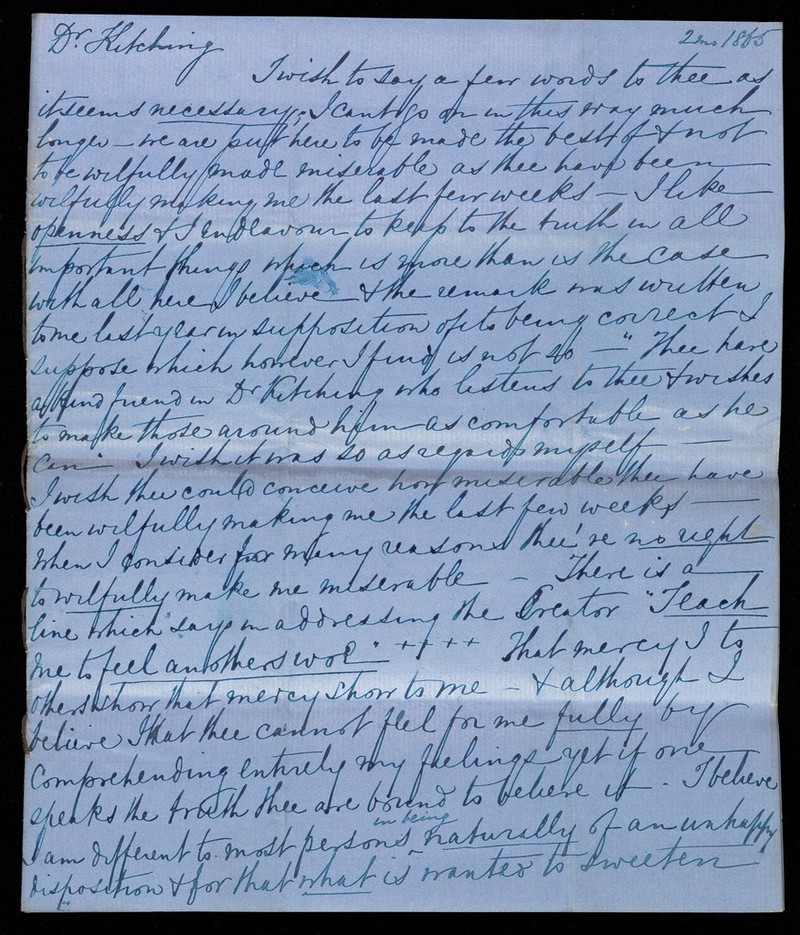 Dr. Kitching
2mo 1865
I wish to say a few words to thee as
it seems necessary. I cant go on in this way much
longer - we are put here to be made the best of & not
to be wilfully made miserable as thee have been
wilfully making me the last few weeks - I like
openness & I endeavour to keep to the truth in all
important things which is more than is the case
with all here I believe - & the remark was written
to me last year in supposition of its being correct I
suppose which however I find is not so - "Thee have
a kind friend in Dr Kitching who listens to thee & wishes
to make those around him as comfortable as he
can" I wish it was so as regards myself -
I wish thee could conceive how miserable thee have
been wilfully making me the last few weeks -
when I consider for many reasons thee've no right
to wilfully make me miserable - There is a
line which says in addressing the Creator "Teach
me to feel anothers woe" ++++ That mercy I to
others show that mercy show to me - & although I
believe that thee cannot feel for me fully by
comprehending entirely my feelings yet if one
speaks the truth thee are bound to believe it - I believe
I am different to most persons in being naturally of an unhappy
disposition & for that what is wanted to sweeten